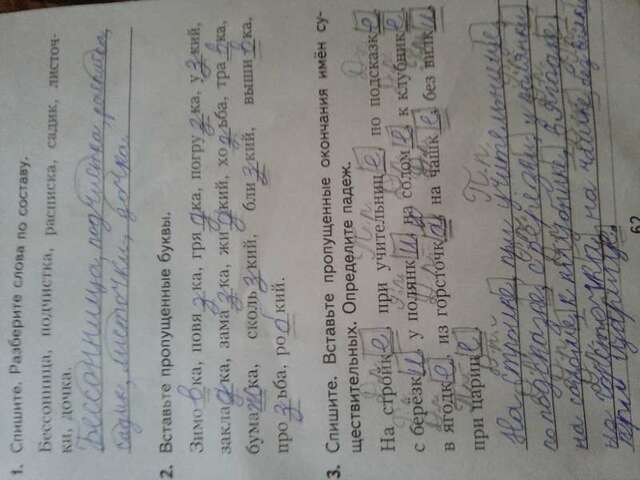 1. Спишите. Разберите слова по составу.
Бессонница, подчистка, расписка, садик, листоч-
ки, дочка.
Бессонница, подчистка, расписка,
садик, листочки, дочка.
2. Вставьте пропущенные буквы.
Зимовка, повязка, грядка, погрузка, узкий,
закладка, замазка, жидкий, ходьба, травка,
бумажка, скользкий, близкий, вышивка.
прозьба, робкий.
3. Спишите. Вставьте пропущенные окончания имён су-
ществительных. Определите падеж.
На стройке, при учительнице, по подсказке,
с берёзки, у полянки, на соломе, к клубнике,
в ягодке, из горсточки, на чашке, без вилки,
при царице.
На стройке, при учительнице,
по подсказке, с берёзки, у полянки,
на соломе, к клубнике, в ягодке,
на чашке, без вилки
при царице.
63